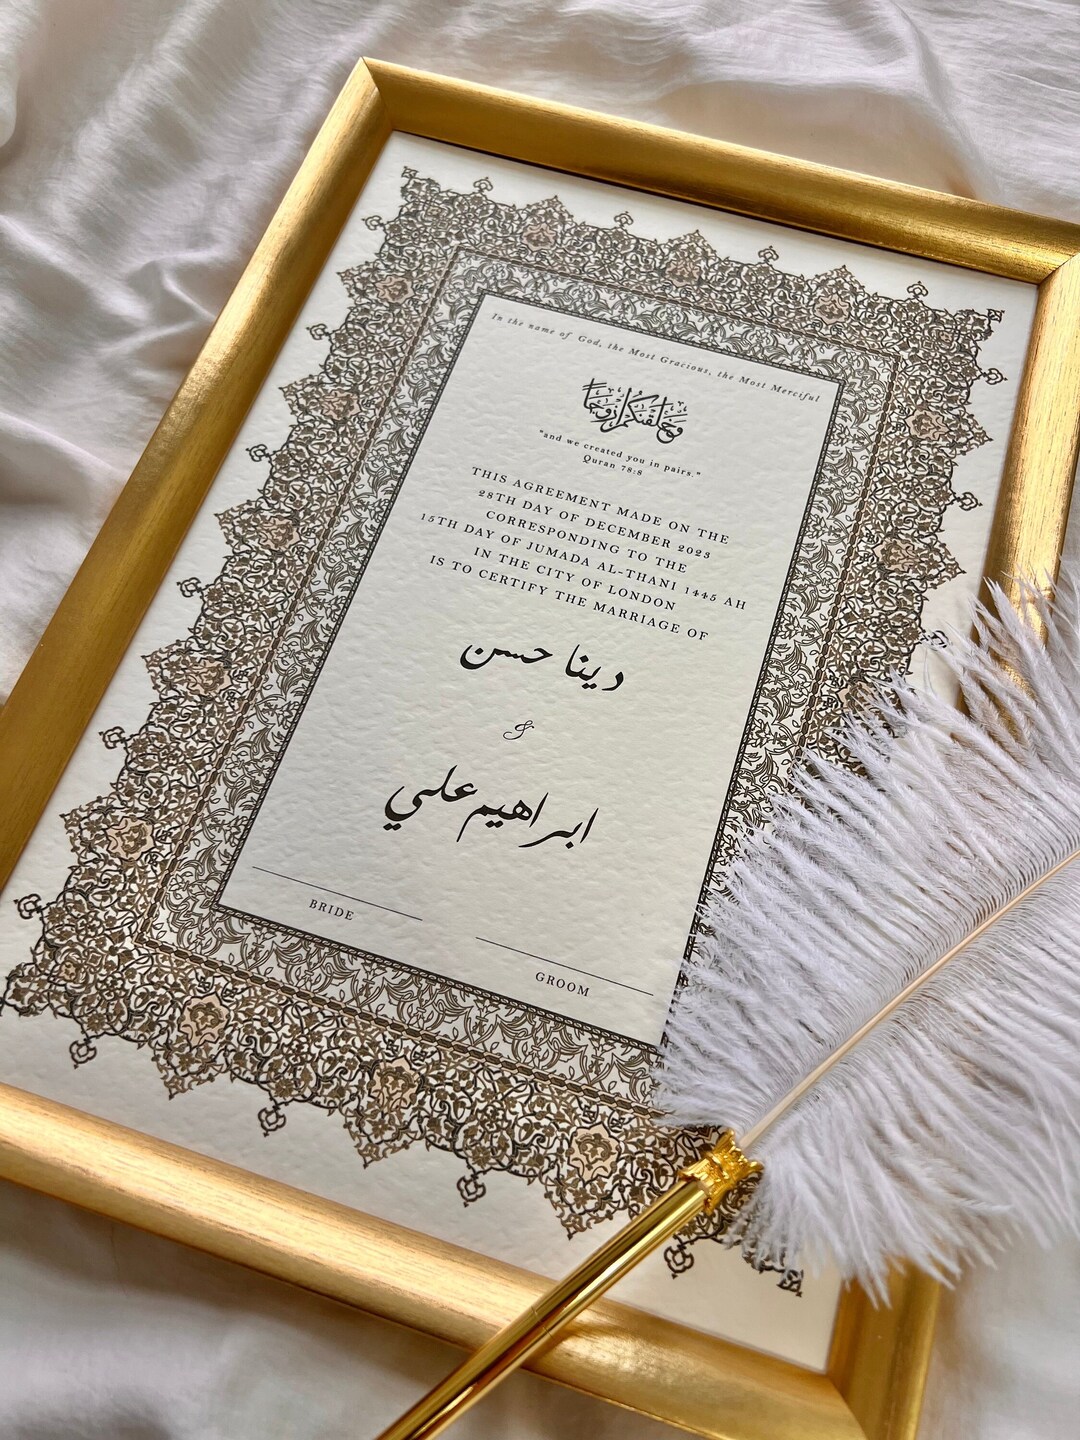 In the name of God, the Most Gracious, the Most Merciful
وَخَلَقْنَاكُمْ أَزْوَاجًا
"and we created you in pairs."
Quran 78:8
THIS AGREEMENT MADE ON THE
28TH DAY OF DECEMBER 2023
CORRESPONDING TO THE
15TH DAY OF JUMADA AL-THANI 1445 AH
IN THE CITY OF LONDON
IS TO CERTIFY THE MARRIAGE OF
دينا حسن
&
ابراهيم علي
BRIDE
GROOM